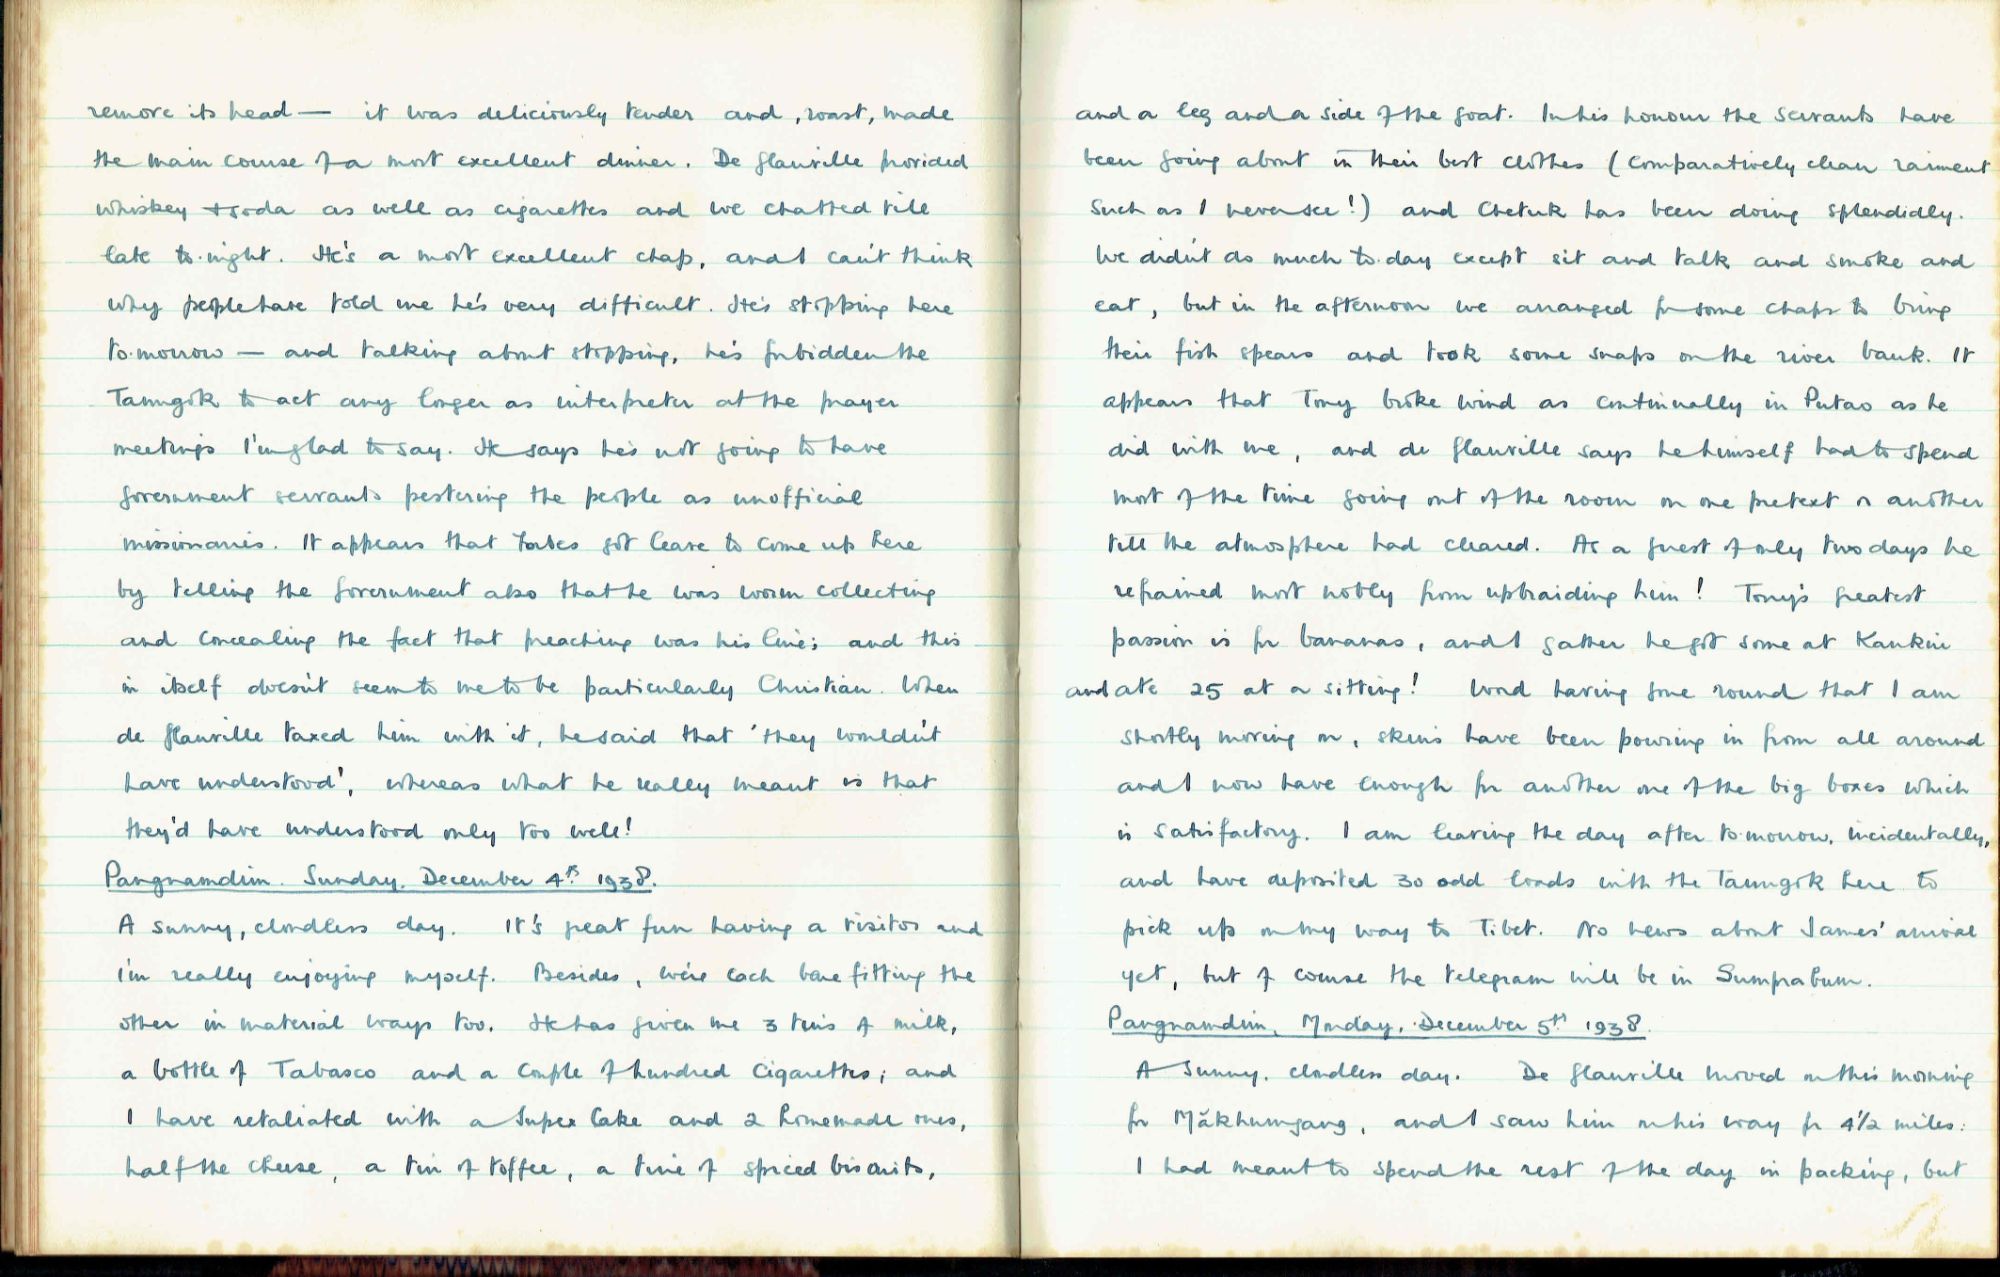 remove its head — it was deliciously tender and, roast, made
the main course of a most excellent dinner. De Glanville provided
whiskey + soda as well as cigarettes and we chatted till
late to-night. He's a most excellent chap, and I can't think
why people have told me he's very difficult. He's stopping here
to-morrow — and talking about stopping, he's forbidden the
Taungok to act any longer as interpreter at the prayer
meetings I'm glad to say. He says he's not going to have
government servants pestering the people as unofficial
missionaries. It appears that Forbes got leave to come up here
by telling the Government also that he was worm collecting
and concealing the fact that preaching was his line; and this
in itself doesn't seem to me to be particularly Christian. When
de Glanville taxed him with it, he said that 'they wouldn't
have understood', whereas what he really meant is that
they'd have understood only too well!
Pangnamdim. Sunday. December 4th 1938.
A sunny, cloudless day. It's great fun having a visitor and
I'm really enjoying myself. Besides, we're each benefitting the
other in material ways too. He has given me 3 tins of milk,
a bottle of Tabasco and a couple of hundred cigarettes; and
I have retaliated with a Super Cake and 2 homemade ones,
half the cheese, a tin of toffee, a tine of spiced biscuits,
and a leg and a side of the goat. In his honour the servants have
been going about in their best clothes (comparatively clean raiment
such as I never see!) and Chetuk has been doing splendidly.
We didn't do much to-day except sit and talk and smoke and
eat, but in the afternoon we arranged for some chaps to bring
their fish spears and took some snaps on the river bank. It
appears that Tony broke wind as continually in Putao as he
did with me, and de Glanville says he himself had to spend
most of the time going out of the room on one pretext or another
till the atmosphere had cleared. As a guest of only two days he
refrained most nobly from upbraiding him! Tony's greatest
passion is for bananas, and I gather he got some at Kankiu
and ate 25 at a sitting! Word having gone round that I am
shortly moving on, skins have been pouring in from all around
and I now have enough for another one of the big boxes which
is satisfactory. I am leaving the day after to-morrow, incidentally,
and have deposited 30 odd loads with the Taungok here to
pick up on my way to Tibet. No news about James' arrival
yet, but of course the telegram will be in Sumprabum.
Pangnamdim, Monday, December 5th 1938.
A sunny, cloudless day. De Glanville moved on this morning
for Măkhumgang, and I saw him on his way for 4½ miles.
I had meant to spend the rest of the day in packing, but